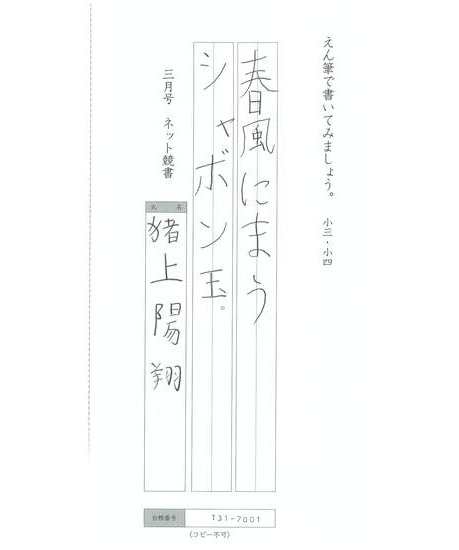 えん筆で書いてみましょう。　小三・小四
春風にまう
シャボン玉。
三月号　ネット競書
氏　名
猪上陽翔
台帳番号　131-7001
〈コピー不可〉